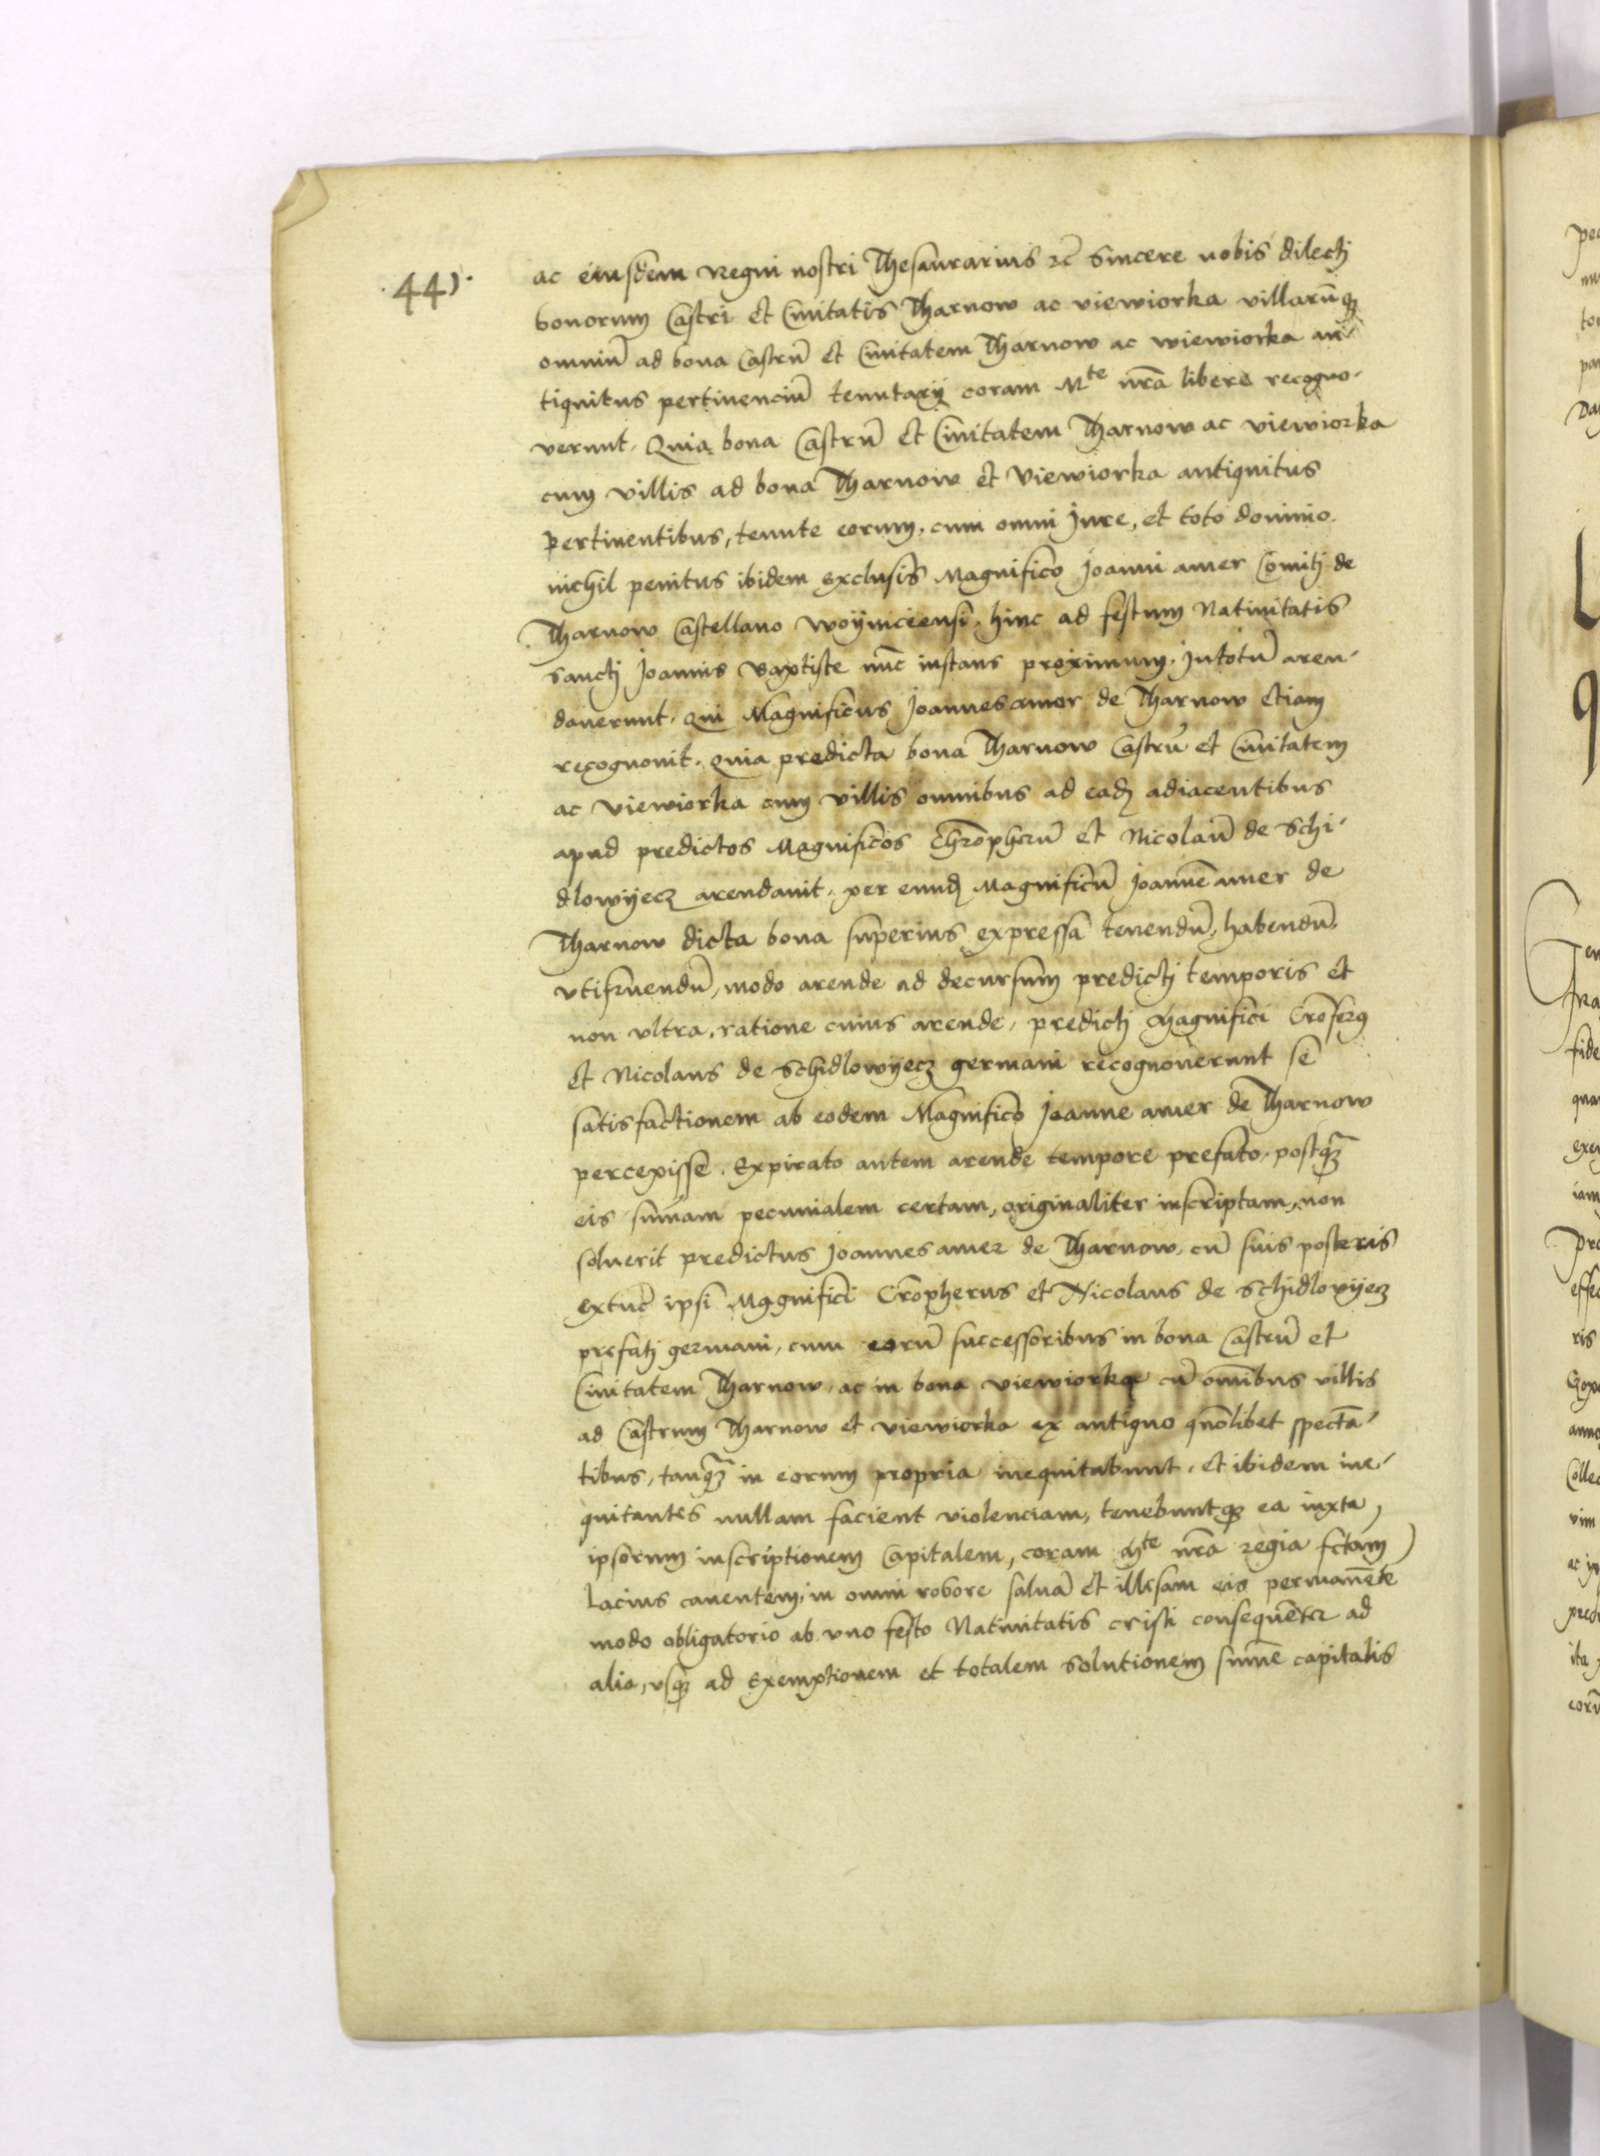 441.
ac eiusdem Regni nostri Thesaurarius etc̄ sincere nobis dilecti
bonorum Castri et Ciuitatis Tharnow ac viewiorka villarūqȝ
omniū ad bona Castrū et Ciuitatem Tharnow ac wiewiorka an-
tiquitus pertinenciū tenutarij coram Mte nr̄a libere recogno-
verunt. Quia bona Castrū et Ciuitatem Tharnow ac viewiorka
cum villis ad bona Tharnow et Viewiorka antiquitus
pertinentibus, tenute eorum, cum omni Jure, et toto dominio
nichil penitus ibidem exclusis Magnifico Joanni amer Comiti de
Tharnow Castellano woyniciensi. hinc ad festum Natiuitatis
sancti Joannis Baptiste nūc instans proximum. Jn totū aren-
dauerunt. Qui Magnificus Joannes amor de Tharnow etiam
recognouit. Quia predicta bona Tharnow Castrū et Ciuitatem
ac Viewiorka cum villis omnibus ad eadȝ adiacentibus
apud predictos Magnificos Chrōpherū et Nicolaū de Schi-
dlowyecz arendauit. per eundȝ Magnificū Joannē amer de
Tharnow dicta bona superius expressa tenendū, habendū,
vtifruendū, modo arende ad decursum predicti temporis et
non vltra. ratione cuius arende, predicti Magnifici Crōferꝰ
et Nicolaus de Schidlowyecz germani recognouerunt se
satisfactionem ab eodem Magnifico Joanne amer de Tharnow
percepisse. Expirato autem arende tempore prefato. postqȝ̄
eis sum̄am pecunialem certam, originaliter inscriptam, non
soluerit predictus Joannes amer de Tharnow, cū suis posteris
extūc ipsi Magnifici Crōpherus et Nicolaus de Schidlovyecz
prefati germani, cum eorū successoribus in bona Castrū et
Ciuitatem Tharnow, ac in bona viewiorka cū om̄ibus villis
ad Castrum Tharnow et viewiorka ex antiquo qm̄olibet spectā-
tibus, tanqȝ̄ in eorum propria inequitabunt. et ibidem ine-
quitantes nullam facient violenciam, tenebuntqȝ ea iuxta
ipsorum inscriptionem Capitalem, coram Mte nr̄a regia fctam
Lacius cauentem, in omni robore saluā et illesam eis permanēte
modo obligatorio ab vno festo Natiuitatis cristi consequēter ad
alia, vsqȝ ad Exemptionem et totalem solutionem sum̄e capitalis